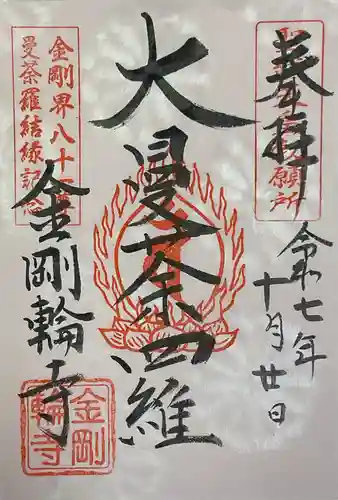 奉拝
令和七年
十月廿日
大曼荼羅
金剛界八十一尊
曼荼羅結縁記念
金剛輪寺
金剛
輪寺
願所